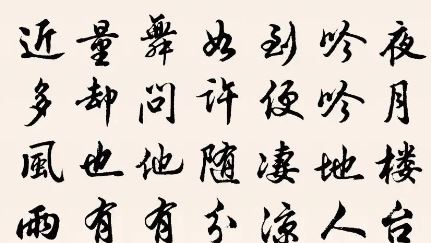 夜月楼台
吟吟地人
到便凄凉
如许随分
舞问他有
量却也有
近多風雨